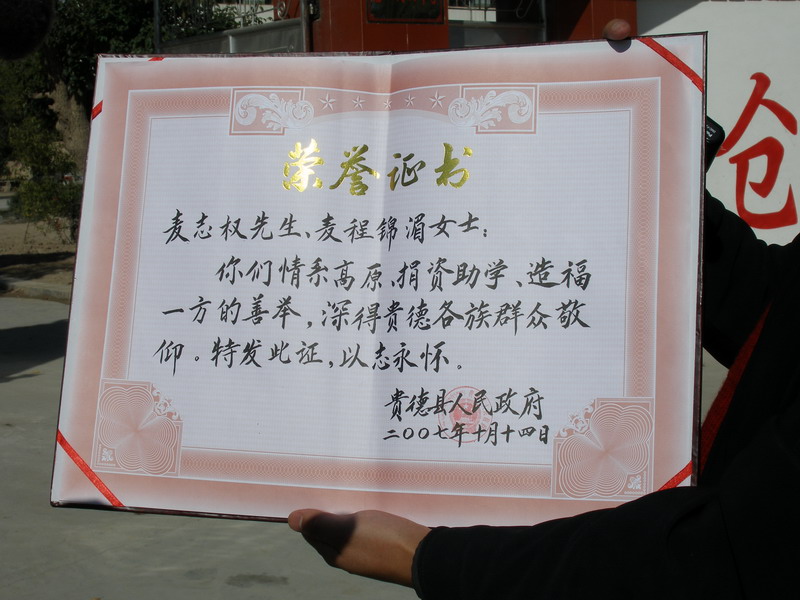 荣誉证书
麦志权先生、麦程锦湄女士：
你们情系高原、捐资助学、造福
一方的善举，深得贵德各族群众敬
仰。特发此证，以志永怀。
贵德县人民政府
二〇〇七年十月十四日
仓